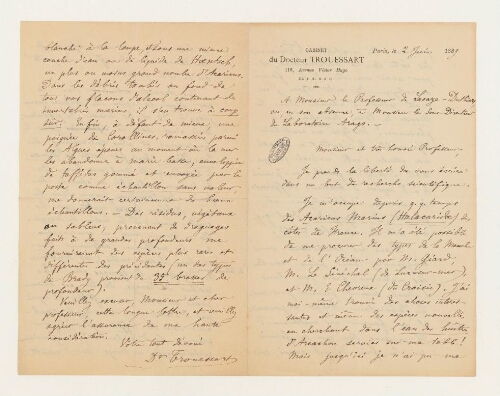 CABINET
du Docteur TROUESSART
Paris, le 2 Juin 1889
112, Avenue Victor Hugo
A Monsieur le Professeur de Lacaze-Duthiers
ou, en son absence, à Monsieur le Sous-Directeur
du Laboratoire Arago. -
Monsieur et très honoré Professeur -
Je prends la liberté de vous écrire
dans un but de recherche scientifique.
Je m'occupe depuis q.q. temps
des Acariens Marins (Halacaridae) des
côtes de France. Il m'a été possible
de me procurer des types de la Manche
et de l'Océan par M. Giard,
M. Le Sénéchal (de Luc-sur-mer)
et M. E. Chevreux (du Croisic). J'ai
moi-même trouvé des choses intéres-
santes et même des espèces nouvelles,
en cherchant dans l'eau des huîtres
d'Arcachon servies sur ma table !
Mais jusqu'ici je n'ai pu me
blanche à la loupe, dans une mince
couche d'eau ou de liquide de
un plus ou moins grand nombre d'Acariens.
Dans les débris tombés au fond de
tous vos flacons d'alcool contenant des
invertébrés marins, il s'en trouve à coup
sûr. Enfin, à défaut de mieux, une
poignée de Corallines, ramassées parmi
les Algues
les abandonne à marée basse, enveloppée
de taffetas gommé et envoyée par la
poste comme échantillon sans valeur,
me donnerait certainement de beaux
échantillons. - Des résidus, végétaux
ou sableux, provenant de dragages
faits à de grandes profondeurs me
fourniraient des espèces plus rares et
différentes des précédentes (un des types
de Brady provient de 35 brasses de
profondeur).
Veuillez excuser, Monsieur et cher
professeur, cette longue lettre, et veuillez
agréer l'assurance de ma haute
considération.
Votre tout dévoué
Dr Trouessart